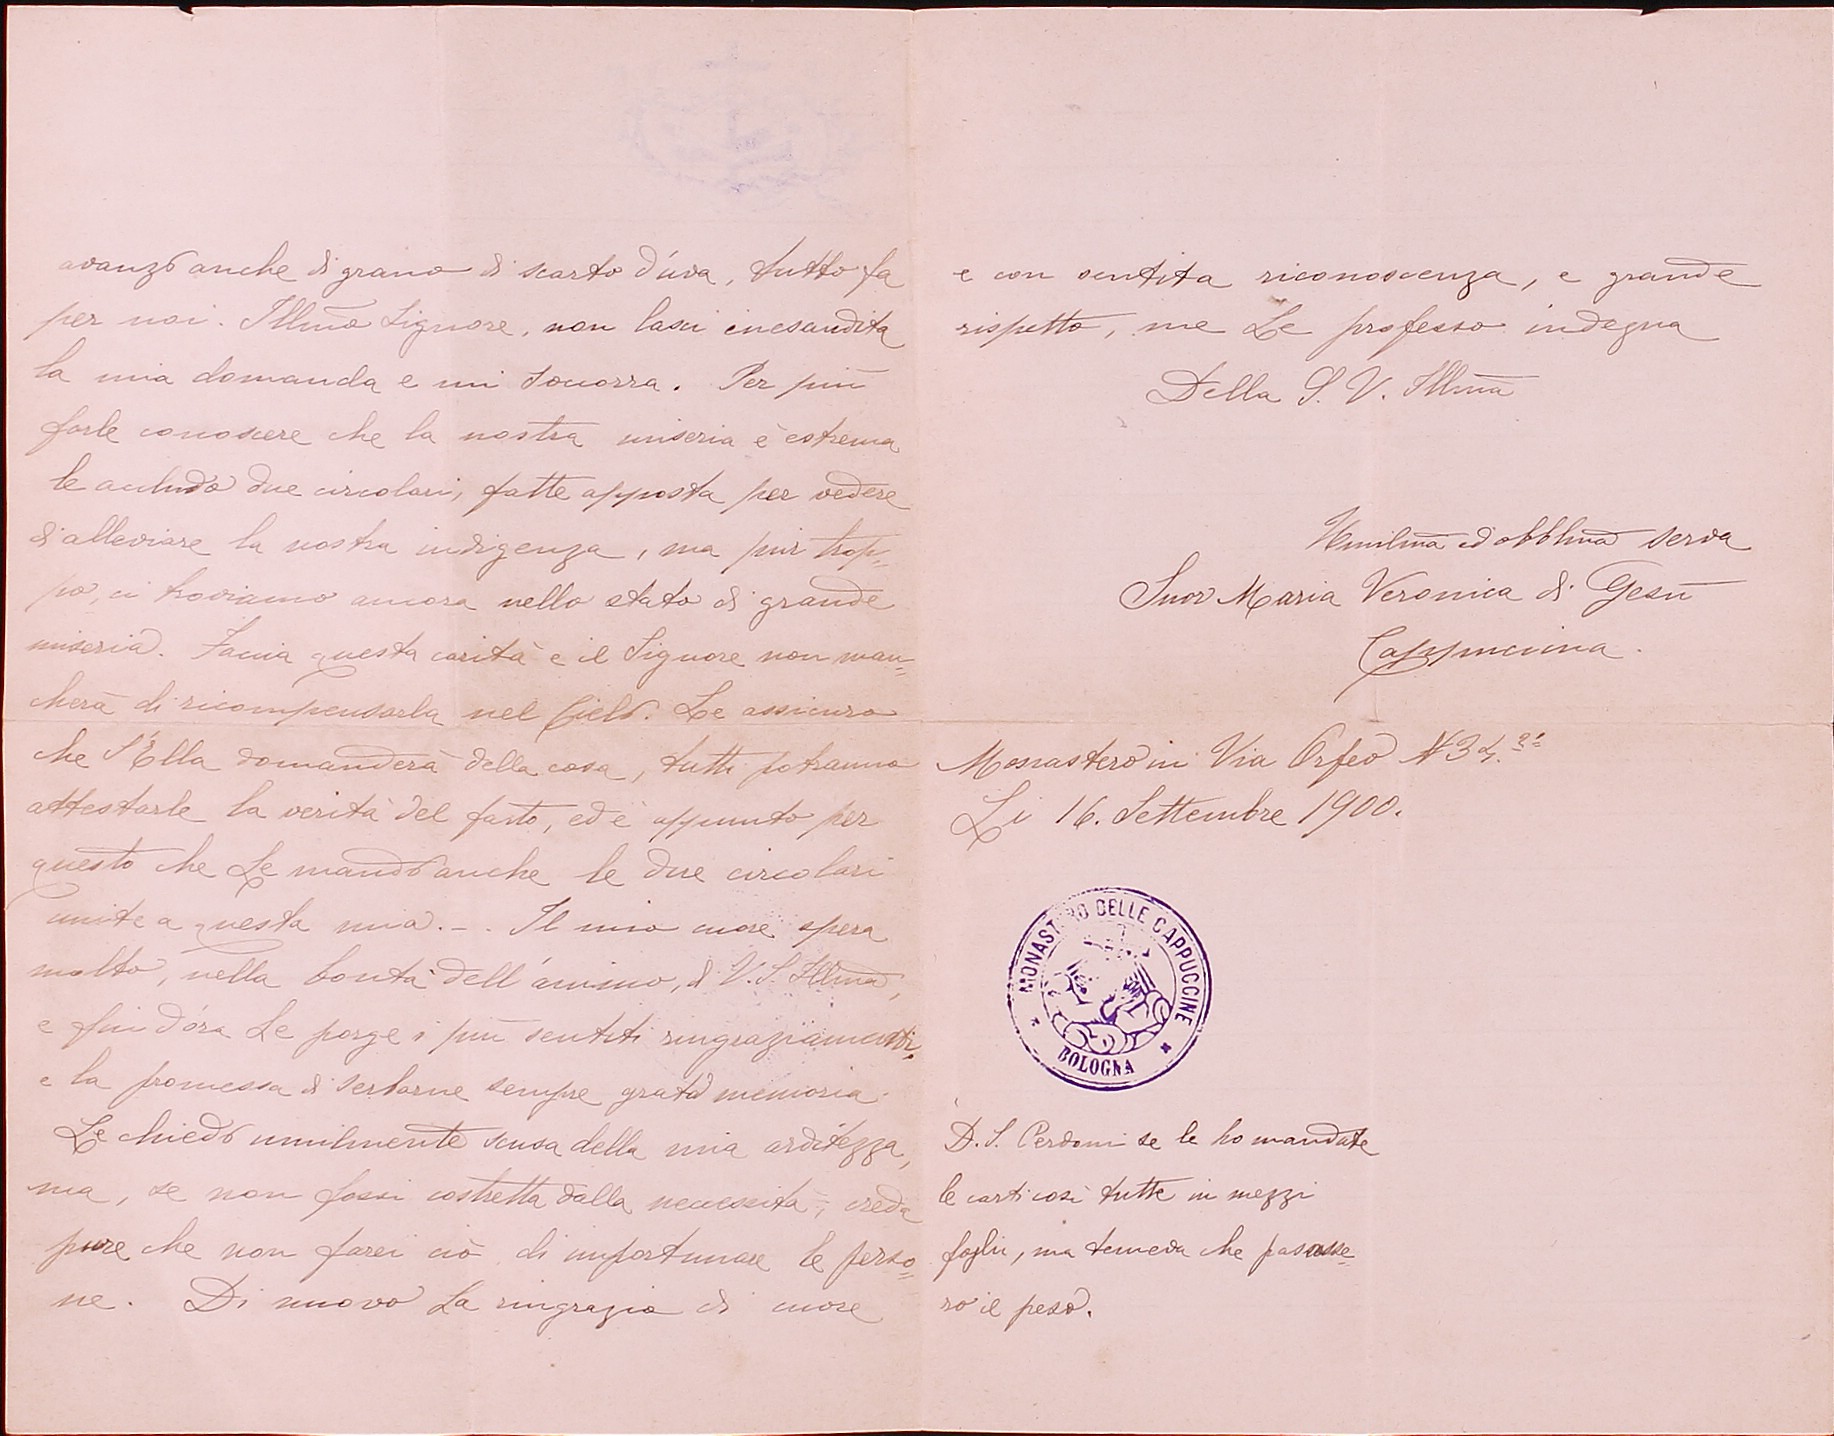 avanzo anche di grano di scarto d'uva, tutto fa
per noi. Illmo Signore, non lasci inesaudita
la mia domanda e mi soccorra. Per più
farle conoscere che la nostra miseria è estrema
le accludo due circolari, fatte apposta per vedere
di alleviare la nostra indigenza, ma pur trop=
po, ci troviamo ancora nello stato di grande
miseria. Faccia questa carità e il Signore non man=
cherà di ricompensarla nel Cielo. Le assicuro
che s'Ella domanderà della cosa, tutti potranno
attestarle la verità del fatto, ed è appunto per
questo che Le mando anche le due circolari
unite a questa mia. - . Il mio cuore spera
molto, nella bontà dell'animo, di V. S. Illma,
e fin d'ora Le porge i più sentiti ringraziamenti,
e la promessa di serbarne sempre grata memoria.
Le chiedo umilmente scusa della mia arditezza,
ma, se non fossi costretta dalla necessità, creda
pure che non farei ciò di importunare le perso=
ne. Di nuovo La ringrazio di cuore
e con sentita riconoscenza, e grande
rispetto, me Le professo indegna
Della S. V. Illma
Umilma ed obblma serva
Suor Maria Veronica di Gesù
Cappuccina.
Monastero in Via Orfeo N 34.
Li 16. Settembre 1900.
MONASTERO DELLE CAPPUCCINE
* BOLOGNA *
D. S. Perdoni se le ho mandate
le carti così tutte in mezzi
foglii, ma temeva che passasse=
ro il peso.